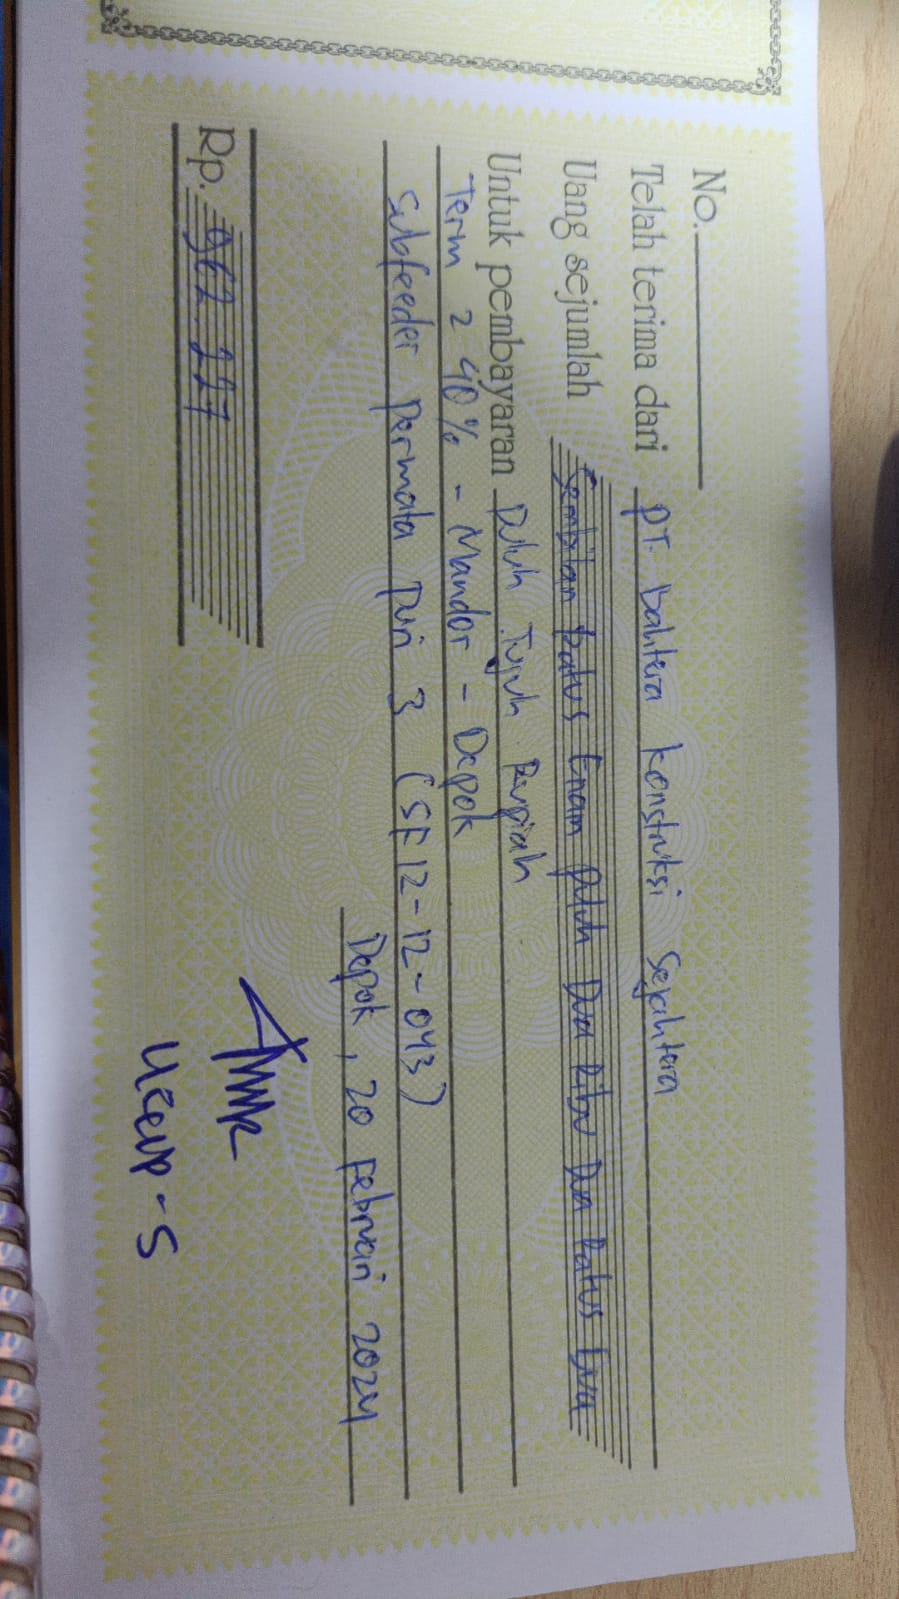 No.
Telah terima dari PT. Bahtera Konstruksi Sejahtera
Uang sejumlah Sembilan Ratus Enam puluh Dua Ribu Dua Ratus Dua
Untuk pembayaran puluh Tujuh Rupiah
Term 2 40% - Mandor - Depok
Subfeeder Permata Puri 3 (SF12-12-043)
Depok, 20 Februari 2024
Rp. 962.227
Ucup-S